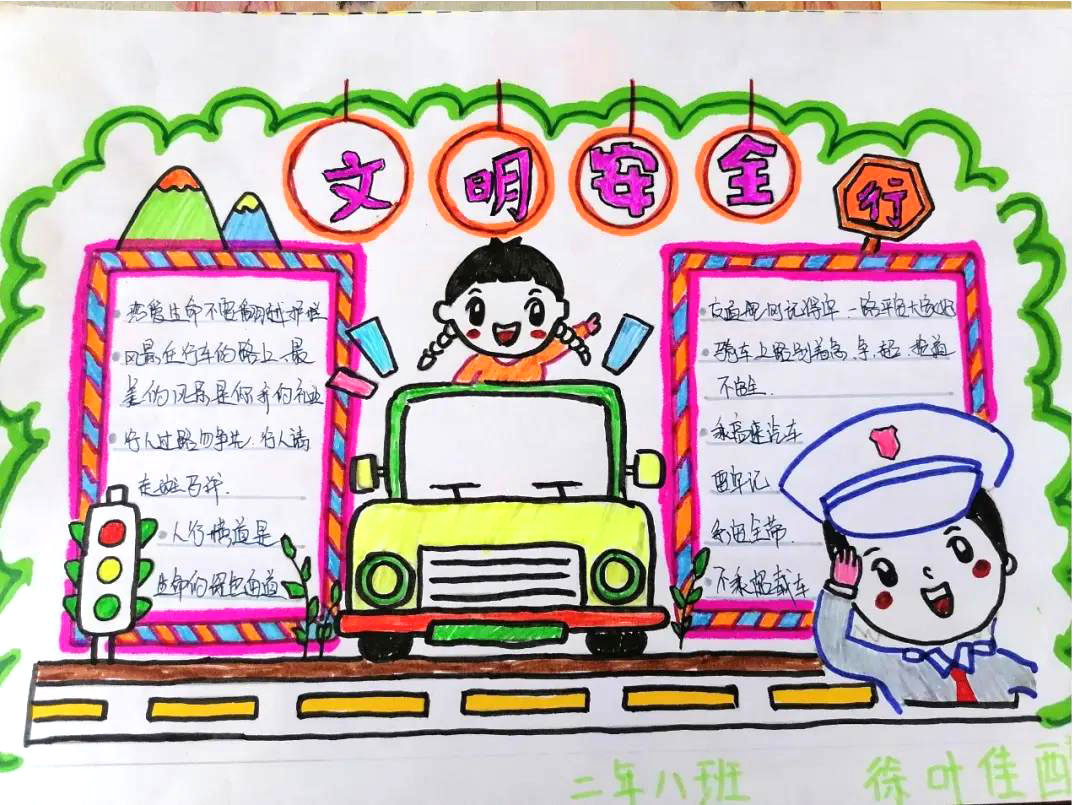 文明安全
行
热爱生命不要翻越护栏
风景在行车的路上、最
美的风景是你我的
行人过路勿争先.行人请
走斑马线.
人行横道是
生命的绿色通道
交通规则记得牢 一路平安大家好
骑车上路别着急.争.超.抢道
不
乘高速汽车
要牢记
系安全带.
不乘超载车
二年八班
徐叶佳